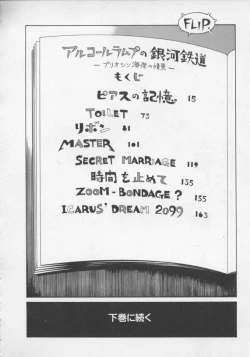 FLIP
アルコールランプの銀河鉄道
―プリオシン海岸の情景―
もくじ
ピアスの記憶 15
TOILET 73
リボン 81
MASTER 101
SECRET MARRIAGE 119
時間を止めて 135
ZOOM-BONDAGE? 155
ICARUS' DREAM 2099 163
下巻に続く